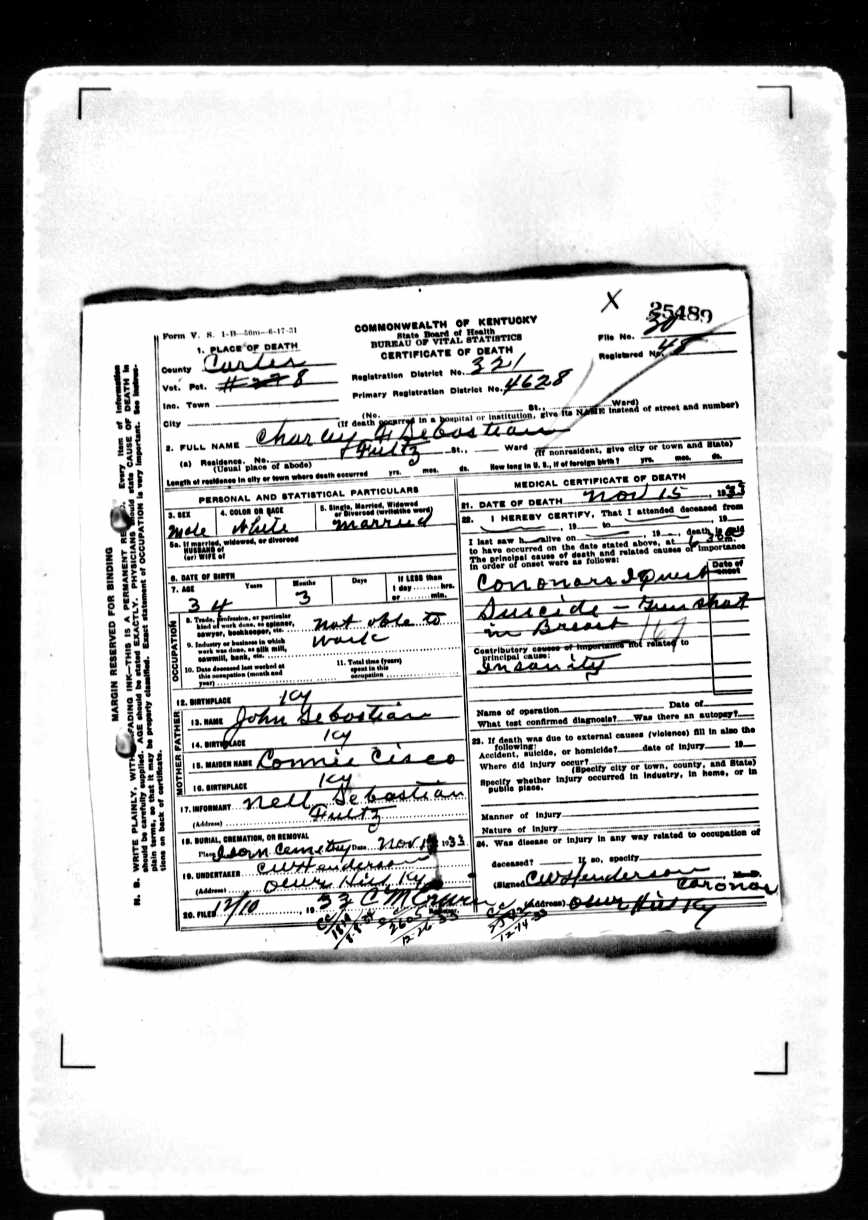 X 35489
Form V. S. 1-B—50m—6-17-31
COMMONWEALTH OF KENTUCKY
State Board of Health
BUREAU OF VITAL STATISTICS
CERTIFICATE OF DEATH
File No. 30
Registered No. 48
1. PLACE OF DEATH
County Carter
Vot. Pct. 8
Inc. Town
City
Registration District No. 321
Primary Registration District No. 4628
(No. St., Ward)
(If death occurred in a hospital or institution, give its NAME instead of street and number)
2. FULL NAME Charley Sebastian
(a) Residence. No. Fultz St., Ward (If nonresident, give city or town and State)
(Usual place of abode)
Length of residence in city or town where death occurred yrs. mos. ds. How long in U. S., if of foreign birth? yrs. mos. ds.
PERSONAL AND STATISTICAL PARTICULARS
3. SEX 4. COLOR OR RACE 5. Single, Married, Widowed
or Divorced (write the word)
Male White Married
5a. If married, widowed, or divorced
HUSBAND of
(or) WIFE of
6. DATE OF BIRTH
7. AGE Years Months Days If LESS than
1 day hrs.
or min.
34 3
OCCUPATION
8. Trade, profession, or particular
kind of work done, as spinner,
sawyer, bookkeeper, etc. Not able to
9. Industry or business in which
work was done, as silk mill,
sawmill, bank, etc. work
10. Date deceased last worked at
this occupation (month and
year)
11. Total time (years)
spent in this
occupation
12. BIRTHPLACE Ky
MOTHER FATHER
13. NAME John Sebastian
14. BIRTHPLACE Ky
15. MAIDEN NAME Connie Cisco
16. BIRTHPLACE Ky
17. INFORMANT Nell Sebastian
(Address) Fultz
18. BURIAL, CREMATION, OR REMOVAL
Place Cemetry Date Nov 1933
19. UNDERTAKER CW Henderson
(Address) Olive Hill, Ky
20. FILED 12/10, 1933 C M
MEDICAL CERTIFICATE OF DEATH
21. DATE OF DEATH Nov 15 1933
22. I HEREBY CERTIFY, That I attended deceased from
, 19 to , 19
I last saw h alive on , 19 , death is said
to have occurred on the date stated above, at 6 30 m.
The principal cause of death and related causes of importance
in order of onset were as follows:
Date of
onset
Cononors Iquest
Suicide — Gun shot
in Breast 167
Contributory causes of importance not related to
principal cause:
Insanity
Name of operation Date of
What test confirmed diagnosis? Was there an autopsy?
23. If death was due to external causes (violence) fill in also the
following:
Accident, suicide, or homicide? date of injury 19
Where did injury occur?
(Specify city or town, county, and State)
Specify whether injury occurred in industry, in home, or in
public place.
Manner of injury
Nature of injury
24. Was disease or injury in any way related to occupation of
deceased? If so, specify
(Signed) CW Henderson, M. D.
Coronor
(Address) Olive Hill Ky
12-26-33
12-14-33
MARGIN RESERVED FOR BINDING
N. B. WRITE PLAINLY, WITH UNFADING INK—THIS IS A PERMANENT RECORD. Every item of information
should be carefully supplied. AGE should be stated EXACTLY. PHYSICIANS should state CAUSE OF DEATH in
plain terms, so that it may be properly classified. Exact statement of OCCUPATION is very important. See instruc-
tions on back of certificate.